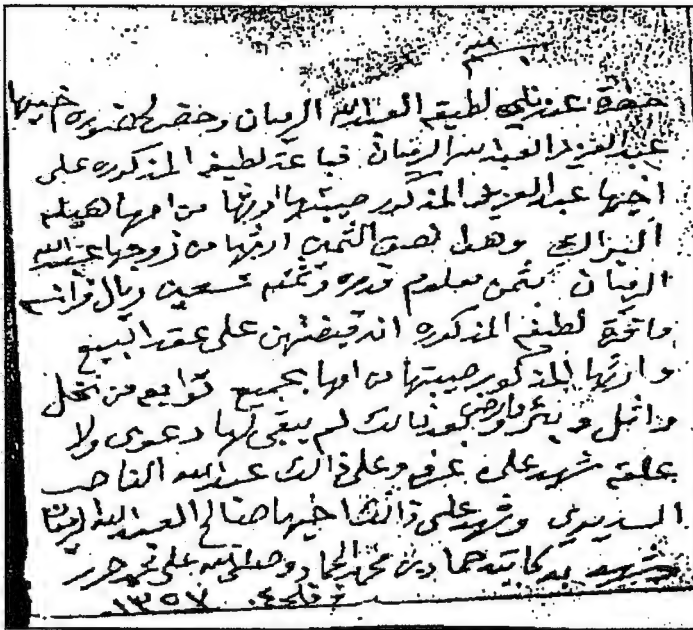 حضرة عندي لطيفه العبدالله الرميان وحضر لحضوره اخيها
عبدالعزيز العبدالله الرميان فباعة لطيفه المذكوره على
اخيها عبدالعزيز المذكور صيبتها ارثها من امها هيله
البراك وهذا نصف الثمن ارثها من زوجها عبدالله
الرميان بثمن معلوم قدره وثمنه تسعين ريال فرانسه
واقرة لطيفه المذكوره انه قبضتهن على عقد البيع
وارثها المذكور صيبتها من امها بجميع توابعه من نخل
واثل وبئر وارض بعد ذالك لم يبقى لها دعوى ولا
علقه شهد على وعلى ذالك عبدالله الناصر
السديري وشهد على ذالك اخيها صالح العبدالله الرميان
شهد به كاتبه حماد بن محمد الحماد وصلى الله على محمد حرر
١٣٥٧